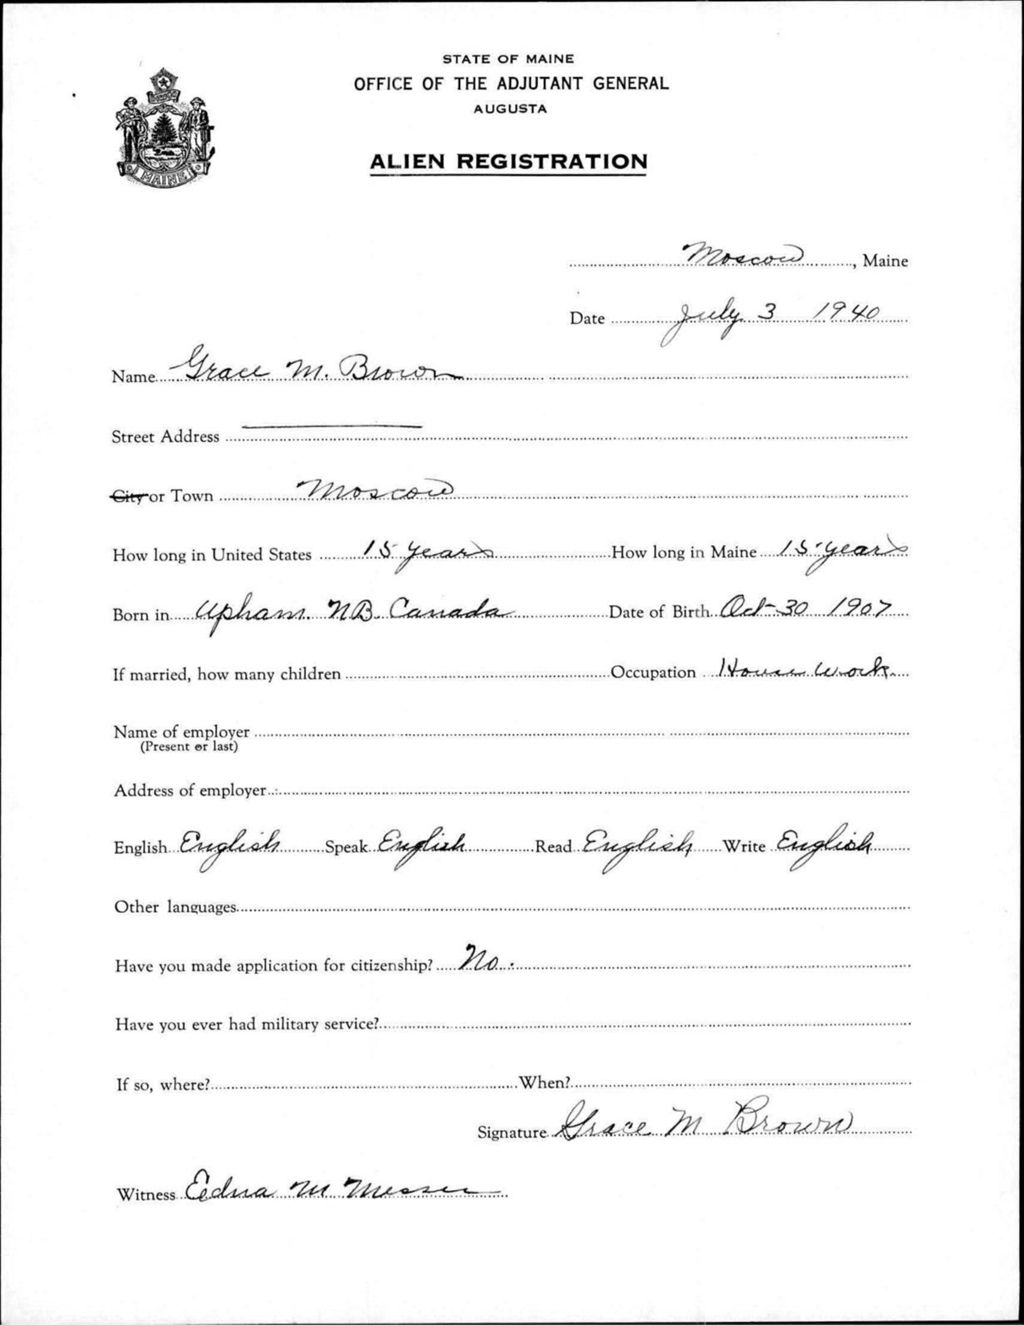 STATE OF MAINE
OFFICE OF THE ADJUTANT GENERAL
AUGUSTA
ALIEN REGISTRATION
MAINE
Moscow, Maine
Date July 3 1940
Name Grace M. Brown
Street Address
City or Town Moscow
How long in United States 15 years How long in Maine 15 years
Born in Upham. N.B. Canada Date of Birth Oct-30 1907
If married, how many children Occupation House work
Name of employer
(Present or last)
Address of employer
English English Speak English Read English Write English
Other languages
Have you made application for citizenship? No.
Have you ever had military service?
If so, where? When?
Signature Grace M Brown
Witness Edna M Messer